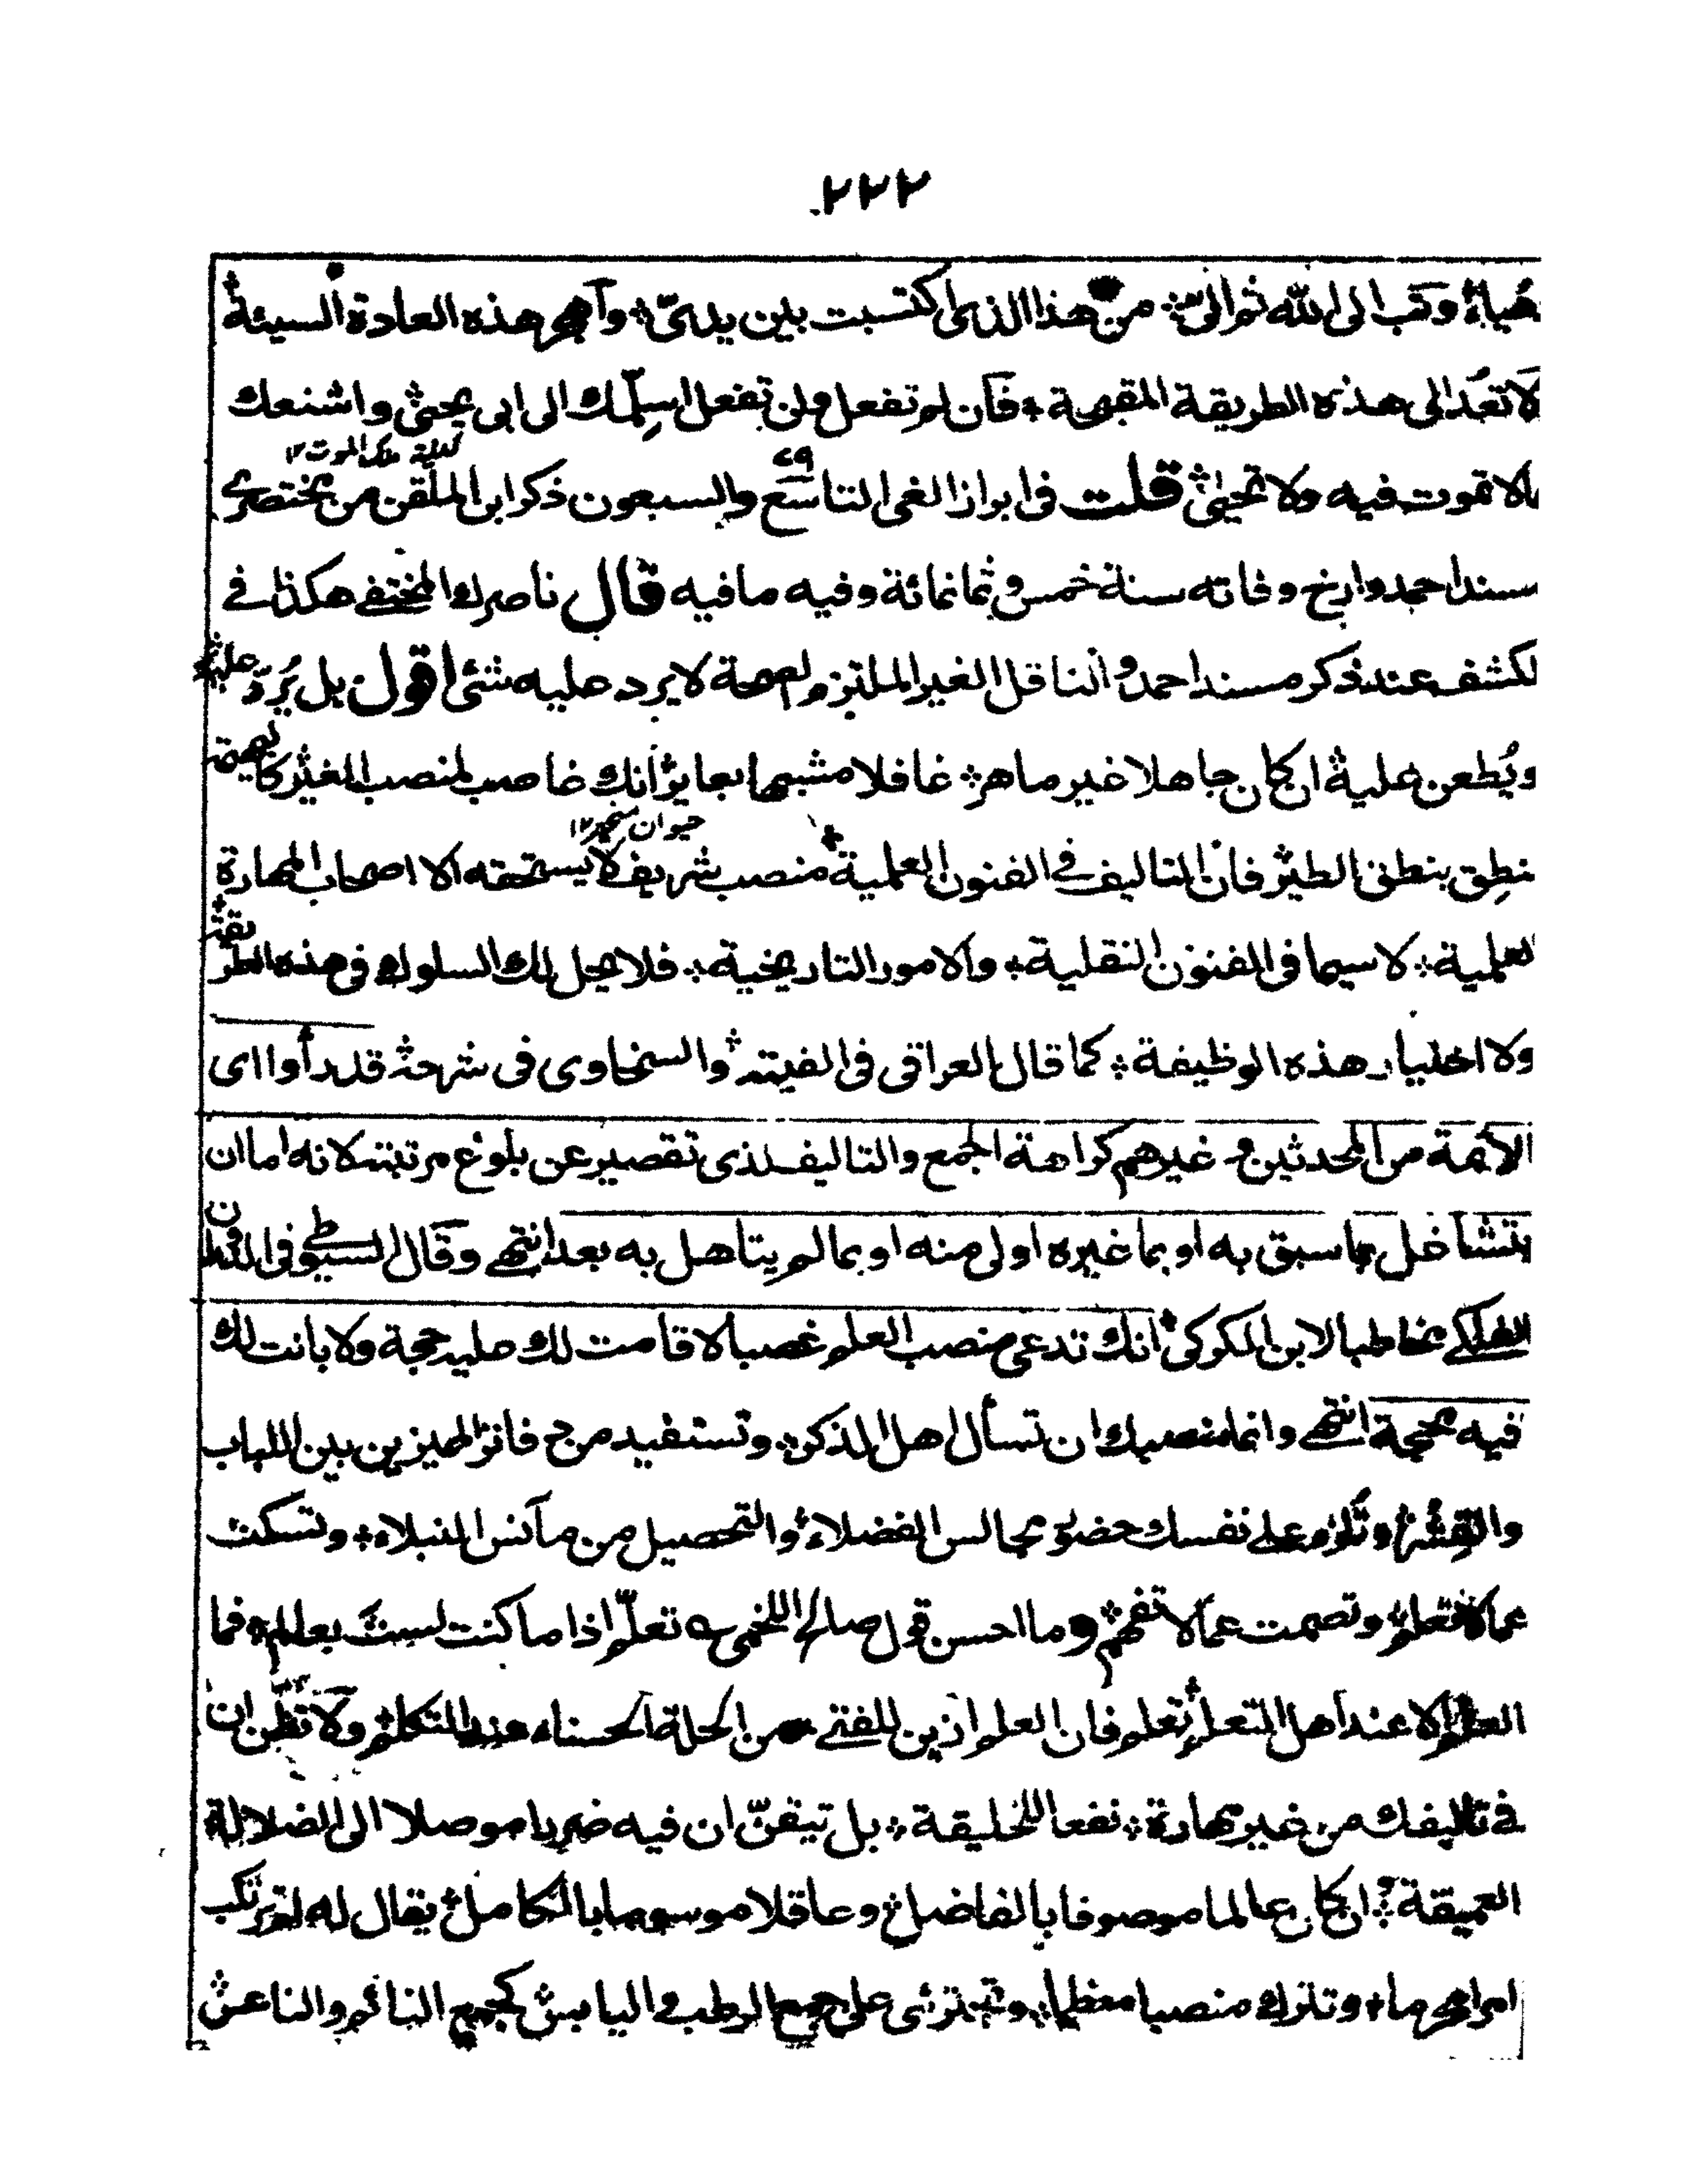 ٢٢٢
هباء وتب الى الله ثم الىّ من هذا الذى اكتسبت بين يدىّ وآهجر هذه العادة السيئة
لا تعد الى هذه الطريقة القبيحة فان لم تفعل ولن تفعل اسلمك الى ابى يحيى واشنعك
كنية ملك الموت ١٢
لا تموت فيه ولا تحيى قلت فى ابراز الغى التاسع والسبعون ذكر ابن الملقن من مختصرى
٧٩
سند احمد وارخ وفاته سنة خمس وثمانمائة وفيه ما فيه قال ناصرك المختفى هكذا فى
لكشف عند ذكر مسند احمد والناقل الغير الملتزم لصحة لا يرد عليه شئ اقول بل يُردّ عليه
ويُطعن عليه ان كان جاهلا غير ماهر غافلا مشبها بعاير انك غاصب لمنصب الغير كبهيمة
حيوان متحير ١٢
نطق بنطق الطير فان التاليف فى الفنون العلمية منصب شريف لا يستحقه الا اصحاب المهارة
لعلمية لا سيما فى الفنون النقلية والامور التاريخية فلا يحل لك السلوك فى هذه الطريقة
ولا اختيار هذه الوظيفة كما قال العراقى فى الفيته والسخاوى فى شرحه قد رأوا اى
الائمة من المحدثين وغيرهم كراهة الجمع والتاليف لذى تقصير عن بلوغ مرتبته لانه اما ان
يتشاغل بما سبق به او بما غيره اولى منه او بما لم يتاهل به بعد انتهى وقال السيوطى فى
مخاطبا لابن الكركى انك تدعى منصب العلم غصبا لا قامت لك عليه حجة ولا بانت لك
فيه محجة انتهى وانما منصبك ان تسأل اهل الذكر وتستفيد من المميزين بين اللباب
والقشر وتلزم على نفسك حضور مجالس الفضلاء والتحصيل من مآنس النبلاء وتسكت
عما لا تعلم وتصمت عما لا تفهم وما احسن قول صالح اللخمى تعلّم اذا ما كنت لست بعالم فما
العلم الا عند اهل التعلم تعلم فان العلم ازين للفتى من الحلة الحسناء عند التكلم ولا تظن ان
فى تاليفك من غير مهارة نفعا للخليقة بل تيقنّ ان فيه ضررا موصلا الى الضلالة
العميقة ان كان عالما موصوفا بالفاضل وعاقلا موسوما بالكامل يقال له لم ترتكب
امرا محرما وتترك منصبا معظما وتجترئ على جمع الرطب واليابس كجمع النائم والناعس